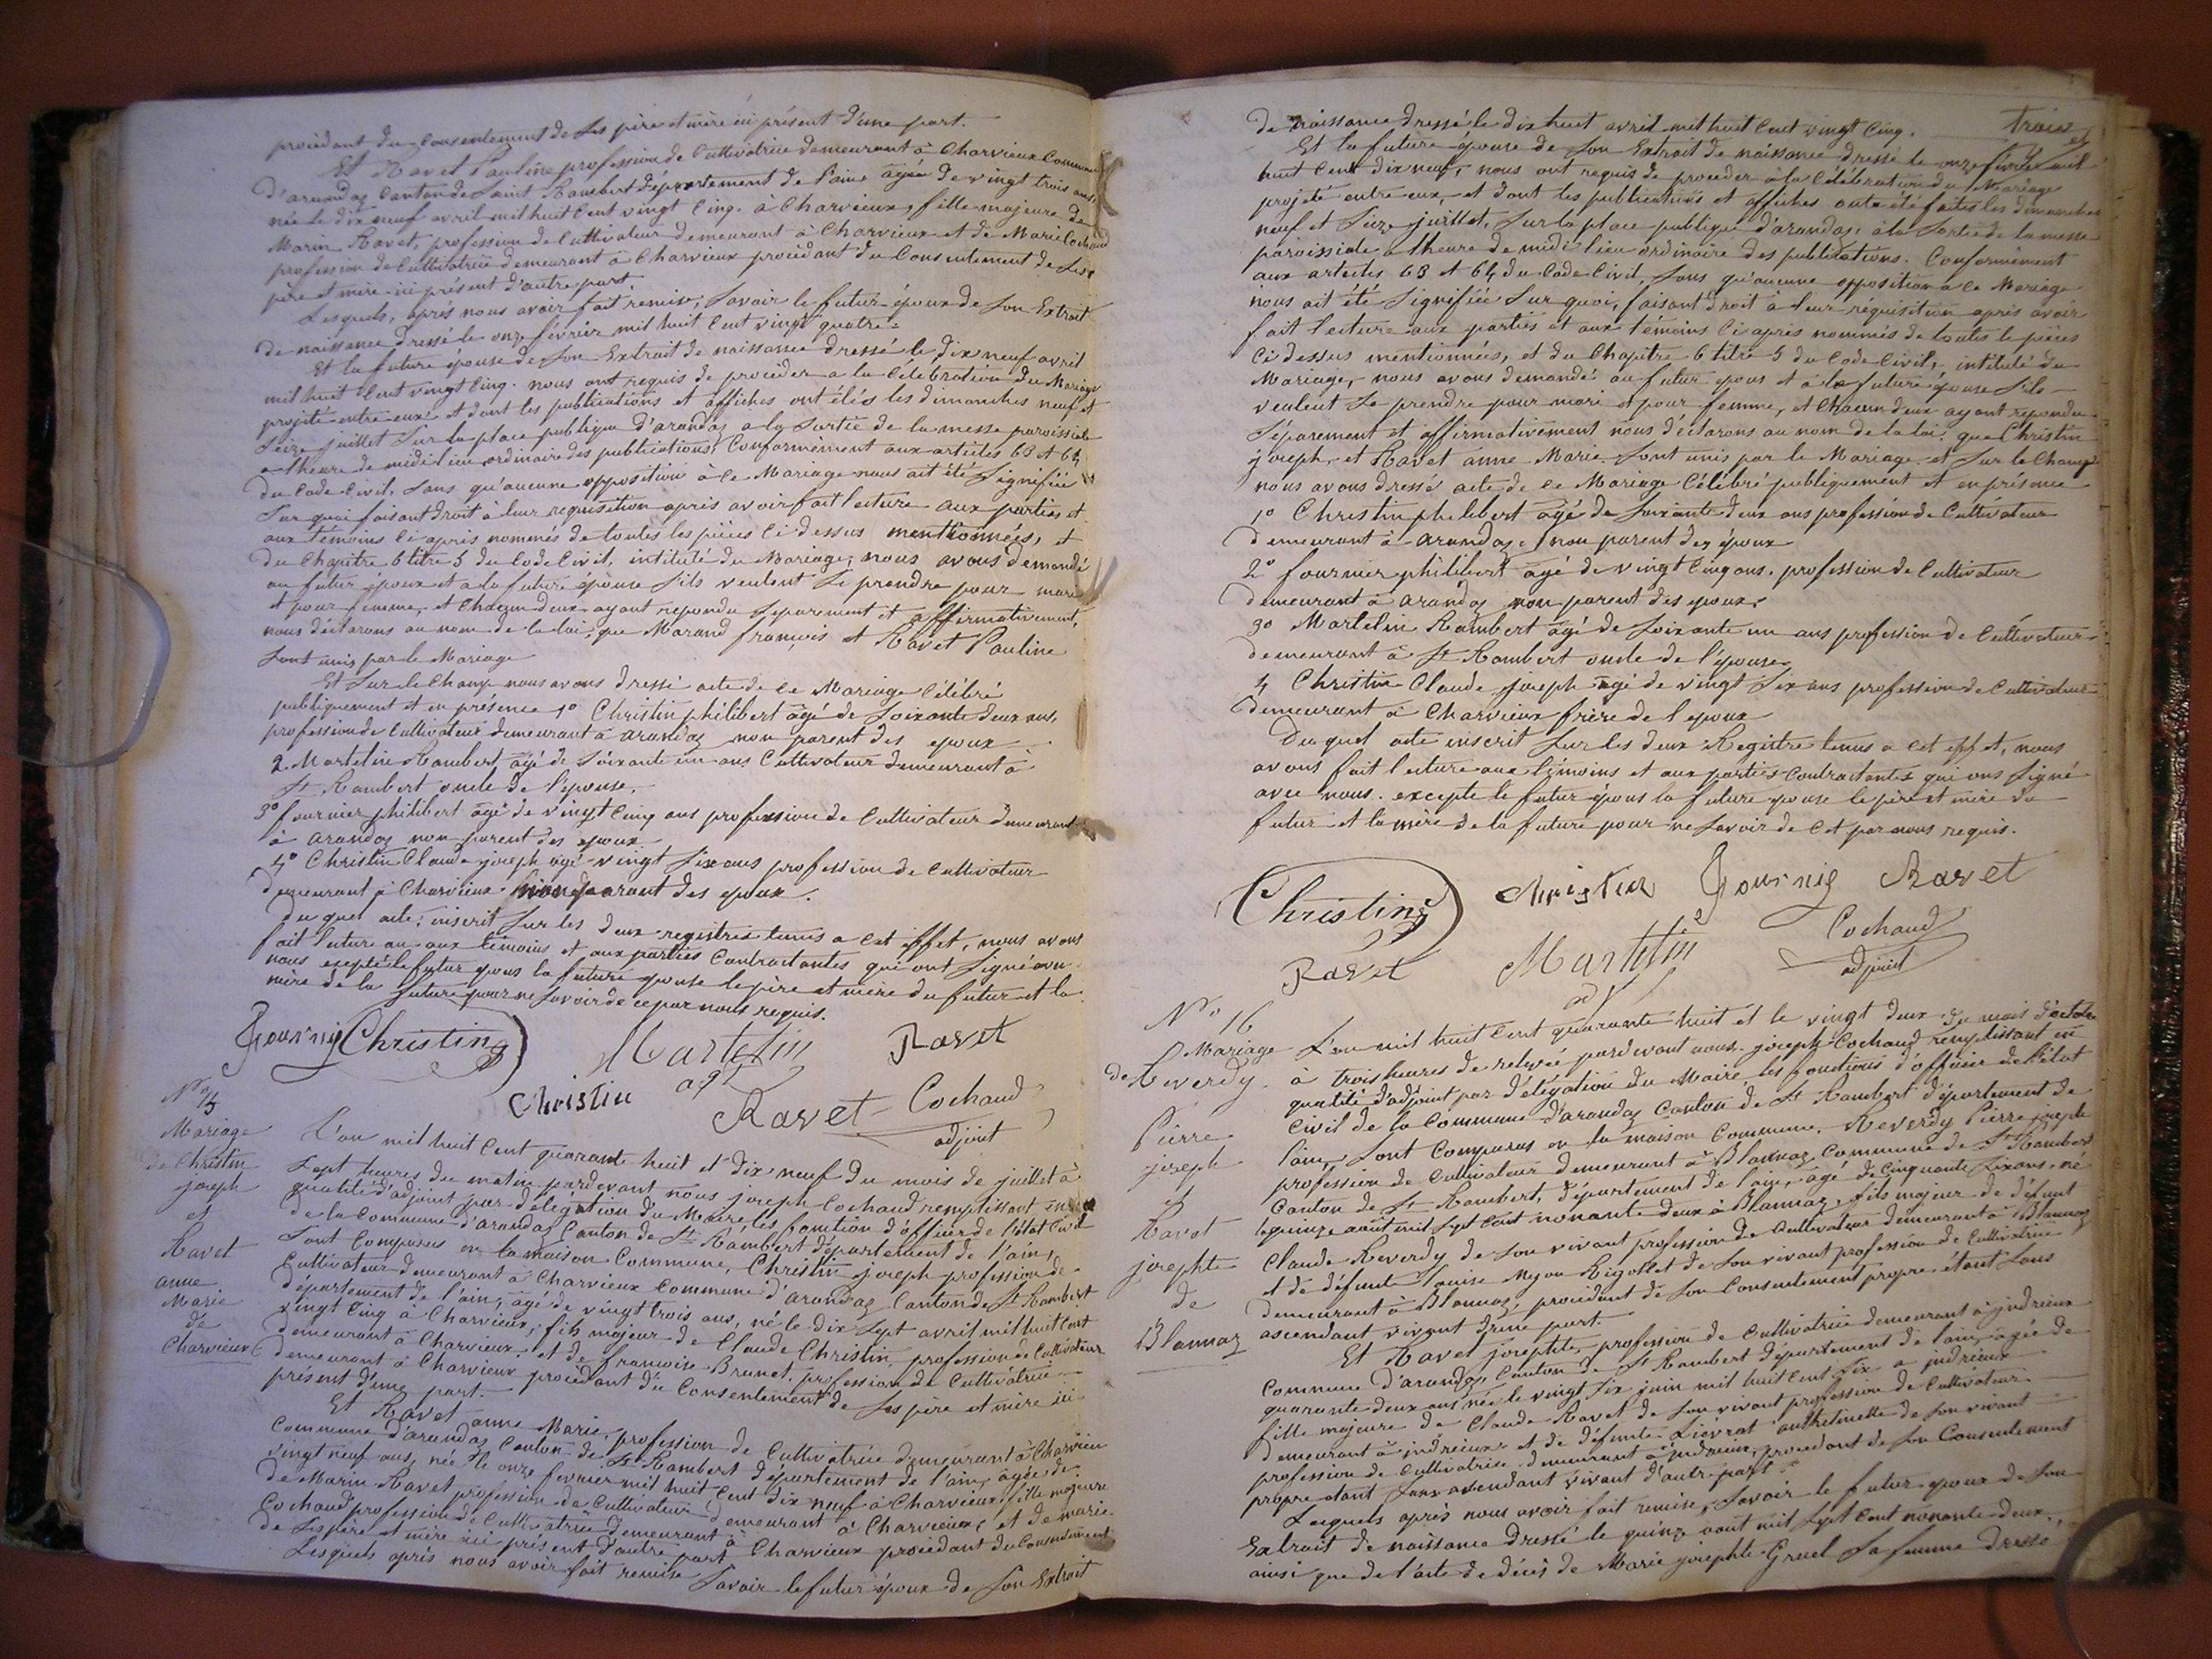 procédant du consentement de ses père et mère ici présent d'une part.
Et Ravet Pauline profession de Cultivatrice demeurant à Charvieux Commune
d'arandaz Canton de Saint Rambert département de l'ain agée de vingt trois ans,
née le dix neuf avril mil huit cent vingt cinq. à Charvieux, fille majeure de
Marin Ravet, profession de Cultivateur demeurant à Charvieux et de Marie Cochaud
profession de Cultivatrice demeurant à Charvieux procédant du Consentement de ses
père et mère ici présent d'autre part.
Lesquels, après nous avoir fait remise, savoir le futur époux de son Extrait
de naissance dressé le onze février mil huit cent vingt quatre.
Et la future épouse de son Extrait de naissance dressé le dix neuf avril
mil huit cent vingt cinq. nous ont requis de procéder a la Célébration du Mariage
projeté entre eux et dont les publications et affiches ont élés les dimanches neuf et
seize juillet sur la place publique d'arandaz a la sortie de la messe paroissiale
a lheure de midi lieu ordinaire des publications, Conformément aux articles 63 et 64
du Code Civil, sans qu'aucune opposition à ce Mariage nous ait été signifiée
Sur quoi faisant droit à leur requisition après avoir fait lecture aux parties et
aux témoins ci après nommés de toutes les pièces ci dessus mentionnées, et
du Chapitre 6 titre 5 du Code Civil, intitulé du Mariage, nous avons demandé
au futur époux et a la future épouse sils veulent se prendre pour mari
et pour femme, et chacun deux ayant repondu separement et affirmativement,
nous déclarons au nom de la loi, que Marand françois et Ravet Pauline
sont unis par le Mariage
Et sur le Champ nous avons dressé acte de ce Mariage Célébré
publiquement et en présence 1° Christin philibert âgé de soixante deux ans,
profession de Cultivateur demeurant à arandaz non parent des epoux
2 Martelin Rambert âgé de soixante un ans Cultivateur demeurant à
St Rambert oncle de l'épouse,
3° fournier philibert âgé de vingt cinq ans profession de Cultivateur demeurant
à arandaz non parent des epoux
4° Christin Claude joseph agé vingt six ans profession de Cultivateur
demeurant à Charvieux non parant des epoux.
du quel acte, inscrit sur les deux registres tenus a cet effet, nous avons
fait lecture au aux témoins et aux parties Contractantes qui ont signé avec
nous excepté le futur epoux la future épouse le père et mère du futur et la
mère de la future pour ne savoir de ce par nous requis.
Fournig Christin Martelin Ravet
Christin Ravet Cochaud
adjoint
N° 15
Mariage
de Christin
joseph
et
Ravet
anne
Marie
de
Charvieux
L'an mil huit cent quarante huit et dix neuf du mois de juillet à
sept heures du matin pardevant nous joseph Cochaud remplissant en
qualité d'adjoint par délégation du Maire, les fonction d'officier de l'état Civil
de la Commune d'arandaz Canton de St Rambert département de l'ain,
sont Comparus en la maison Commune, Christin joseph profession de
Cultivateur demeurant à Charvieux Commune d'arandaz Canton de St Rambert
département de l'ain, âgé de vingt trois ans, né le dix sept avril mil huit cent
vingt cinq à Charvieux, fils majeur de Claude Christin, profession de Cultivateur
demeurant à Charvieux, et de francoise Brunet, profession de Cultivatrice
demeurant à Charvieux procédant du Consentement de ses père et mère ici
présent d'une part.
Et Ravet anne Marie, profession de Cultivatrice demeurant à Charvieux
Commune d'arandaz Canton de St Rambert département de l'ain, agée de
vingt neuf ans, née le onze fevrier mil huit cent dix neuf à Charvieux, fille majeure
de Marin Ravet profession de Cultivateur demeurant à Charvieux, et de marie
Cochaud profession de Cultivatrice demeurant à Charvieux procédant du Consentement
de ses père et mère ici présent d'autre part
Lesquels après nous avoir fait remise savoir le futur époux de son Extrait
de naissance dressé le dix huit avril mil huit cent vingt cinq. trois
Et la future épouse de son Extrait de naissance dressé le onze février mil
huit cent dix neuf, nous ont requis de proceder a la Célébration du Mariage
projeté entre eux, et dont les publications et affiches ont été faites les dimanches
neuf et seize juillet, sur la place publique d'arandaz, à la sortie de la messe
paroissiale, a lheure de midi lieu ordinaire des publications. Conformément
aux articles 63 et 64 du Code Civil, sans qu'aucune opposition a ce Mariage
nous ait été signifiée sur quoi, faisant droit à leur réquisition après avoir
fait lecture aux parties et aux témoins ci après nommés de toutes le pièces
ci dessus mentionnées, et du Chapitre 6 titre 5 du Code Civil, intitulé du
Mariage, nous avons demandé au futur epoux et à la future épouse sils
veulent se prendre pour mari et pour femme, et chacun deux ayant répondu
séparement et affirmativement nous déclarons au nom de la loi, que Christin
joseph, et Ravet anne Marie sont unis par le Mariage et sur le Champ
nous avons dressé acte de ce Mariage Célébré publiquement et en présence
1° Christin philibert âgé de soixante deux ans profession de Cultivateur
demeurant à arandaz, non parent des époux
2° fournier philibert âgé de vingt cinq ans, profession de Cultivateur
demeurant à arandaz non parent des epoux,
3° Martelin Rambert âgé de soixante un ans profession de Cultivateur
demeurant à St Rambert oncle de l'épouse,
4 Christin Claude joseph âgé de vingt six ans profession de Cultivateur
demeurant à Charvieux frère de l'epoux
Du quel acte inscrit sur les deux Registre tenus a cet effet, nous
avons fait lecture aux témoins et aux parties Contractantes qui ons signé
avec nous. excepte le futur époux la future epouse le père et mère du
futur et la mère de la future pour ne savoir de cet par nous requis.
Christin Christin Fournig Ravet
Ravet Martelin Cochaud
adjoint
N° 16
Mariage
de Reverdy
Pierre
joseph
et
Ravet
josephte
de
Blannaz
L'an mil huit cent quarante huit et le vingt deux du mois d'octobre
à trois heures de relevée pardevant nous joseph Cochaud remplissant en
qualité d'adjoint par délégation du Maire, les fonctions d'officier de l'état
Civil de la Commune d'arandaz Canton de St Rambert département de
l'ain, sont Comparus en la maison Commune, Reverdy Pierre joseph
profession de Cultivateur demeurant à Blannaz Commune de St Rambert
Canton de St Rambert, département de l'ain, agé de cinquante six ans, né
le quinze août mil sept cent nonante deux à Blannaz, fils majeur de défunt
Claude Reverdy de son vivant profession de Cultivateur demeurant à Blannaz
et de défunte louise Rigollet de son vivant profession de Cultivatrice
demeurant à Blannaz, procédant de son Consentement propre, étant sans
ascendant vivant d'une part.
Et Ravet josephte, profession de Cultivatrice demeurant à judrieux
Commune d'arandaz, Canton de St Rambert département de l'ain, agée de
quarante deux ans née le vingt six juin mil huit cent six a judrieux
fille majeure de Claude Ravet de son vivant profession de Cultivateur
demeurant à judrieux et de défunte Liévrat anthelmette de son vivant
profession de Cultivatrice demeurant à judrieux, procédant de son Consentement
propre étant sans ascendant vivant d'autre part.
Lesquels après nous avoir fait remise, savoir le futur epoux de son
Extrait de naissance dressé le quinze août mil sept cent nonante deux,
ainsi que de l'acte de décès de Marie josephte Gruel sa femme dressé